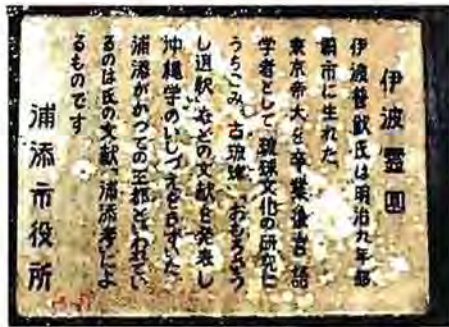 伊波霊園
伊波普猷氏は明治九年那
覇市に生れた
東京帝大を卒業後言語
学者として、琉球文化の研究に
うちこみ、古琉球、おもろそうう
し選釈、などの文献を発表し
沖縄学のいしづえをきずいた。
浦添がかつての王都といわれてい
るのは氏の文献、浦添考によ
るものです
浦添市役所